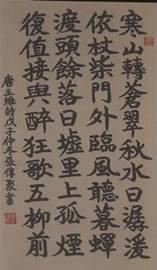 寒山轉蒼翠秋水日潺湲
依杖柴門外臨風聽暮蟬
渡頭餘落日墟里上孤煙
復值接輿醉狂歌五柳前
唐王維詩戊子仲冬張傳家書